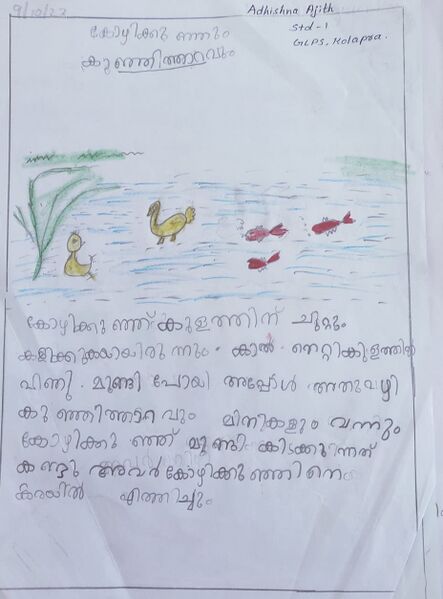 9/10/22
Adhishna Ajith
Std-1
GLPS, Kolapra.
കോഴിക്കു ഞ്ഞും
കുഞ്ഞിത്താറവും
കോഴിക്കു ഞ്ഞ് കുളത്തിന് ചുറ്റും
കളിക്കുകയായിരു ന്നും. കാൽ തെറ്റികുളത്തിൽ
വീണു. മുങ്ങി പോയി അപ്പോൾ അതുവഴി
കു ഞ്ഞിത്താറ വും മീനുകളും വന്നും
കോഴിക്കു ഞ്ഞ് മുങ്ങി കിടക്കുന്നത്
കണ്ടു അവർ കോഴിക്കു ഞ്ഞി നെ
കരയിൽ എത്തിച്ചും